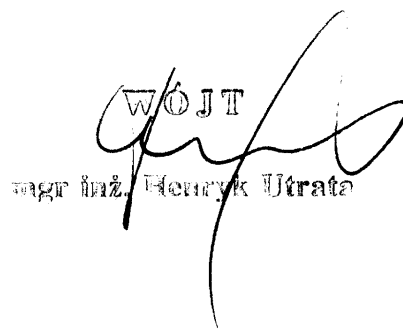 WÓJT
mgr inż. Henryk Utrata